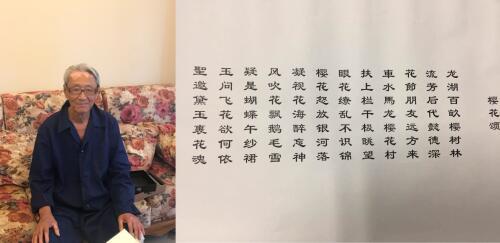 樱花颂
龙湖百畝樱树林
流芳后代懿德深
花節朋友远方来
車水馬龙樱花村
扶上栏干极眺望
眼花缭乱不识锦
樱花怒放银河落
凝视花海醉忘神
风吹花飘鹅毛雪
疑是蝴蝶午纱裙
玉问飞花欲何依
聖邀黛玉裹花魂